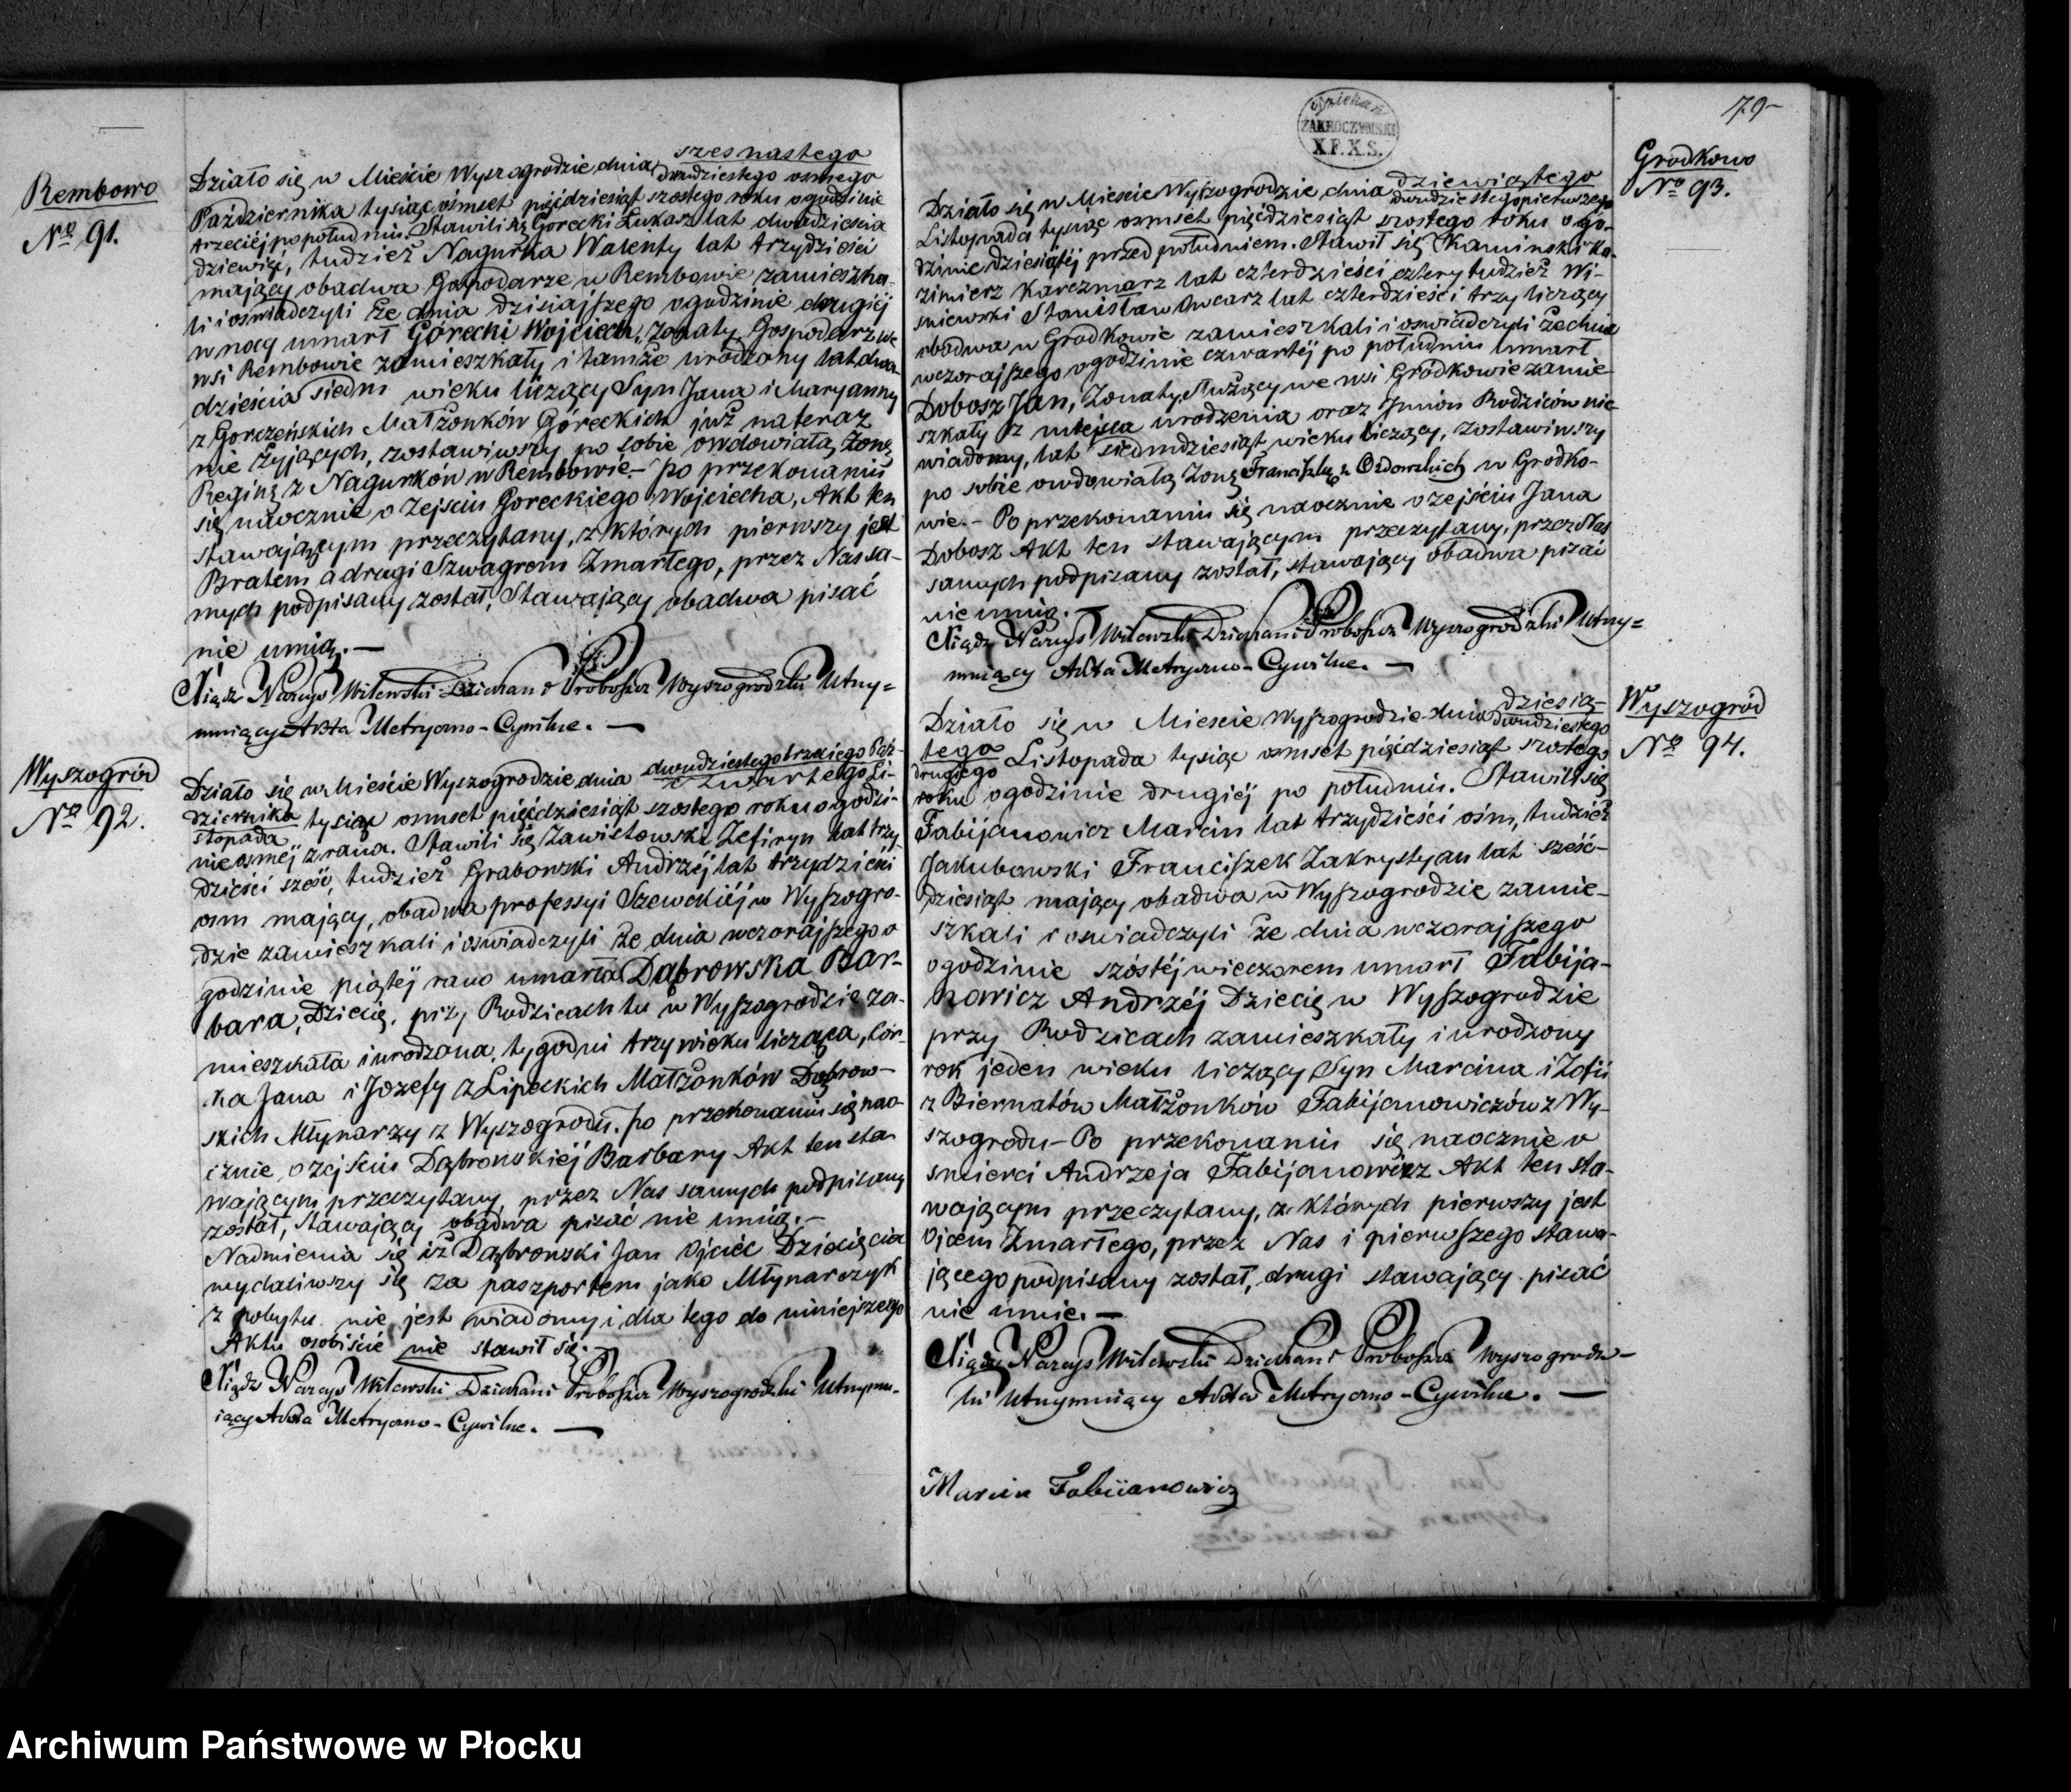 Rembowo
Nro 91.
Działo się w Mieście Wyszogrodzie dnia szesnastego
dwudziestego osmego
Października tysiąc ośmset pięćdziesiąt szostego roku o godzinie
trzeciéj po południu. Stawili się Górecki Łukasz lat dwadzieścia
dziewięć, tudzież Nagurka Walenty lat trzydzieści
mający obadwa Gospodarze w Rembowie zamieszka-
li i oświadczyli że dnia dzisiajszego o godzinie drugiéj
w nocy umarł Górecki Wojciech, żonaty, Gospodarz we
wsi Rembowie zamieszkały i tamże urodzony lat dwa-
dzieścia siedm wieku liczący Syn Jana i Maryanny
z Gorczeńskich Małżonków Góreckich już na teraz
nie żyjących, zostawiwszy po sobie owdowiałą żonę
Reginę z Nagurków w Rembowie.- Po przekonaniu
się naocznie o zejściu Goreckiego Wojciecha, Akt ten
stawającym przeczytany, z których pierwszy jest
Bratem a drugi Szwagrem Zmarłego, przez Nas sa-
mych podpisany został, Stawający obadwa pisać
nie umią.—
Xiądz Narcys Witewski Dziekan i Proboszcz Wyszogrodzki Utrzy=
muiący Akta Metryczno-Cywilne.—
Wyszogród
Nro 92.
Działo się w Mieście Wyszogrodzie dnia dwudziestego trzeciego Paź-
czwartego Li-
dziernika
stopada tysiąc osmset pięćdziesiąt szostego roku o godzi-
nie osméj z rana. Stawili się Zawistowski Zefiryn lat trzy-
dzieści sześć, tudzież Grabowski Andrzéj lat trzydzieści
osm mający, obadwa professyi Szewckiéj w Wyszogro-
dzie zamieszkali i oświadczyli że dnia wczorajszego o
godzinie piątéj rano umarła Dąbrowska Bar-
bara, Dziecię, przy Rodzicach tu w Wyszogrodzie za-
mieszkała i urodzona, tygodni trzy wieku licząca, Cór-
ka Jana i Jozefy z Lipeckich Małżonków Dąbrow-
skich Młynarzy z Wyszogrodu. Po przekonaniu się nao-
cznie o zejściu Dąbrowskiéj Barbary Akt ten sta-
wającym przeczytany, przez Nas samych podpisany
został, Stawający obadwa pisać nie umią.—
Nadmienia się iż Dąbrowski Jan Ojciec Dziecięcia
wydaliwszy się za paszportem jako Młynarczyk
z pobytu nie jest wiadomy i dla tego do niniejszego
Aktu osobiście nie stawił się.—
Xiądz Narcys Witewski Dziekan i Proboszcz Wyszogrodzki Utrzymu-
iący Akta Metryczno-Cywilne.—
Dziekan
ZAKROCZYMSKI
X.F.X.S.
79
Grodkowo
Nro 93.
Działo się w Miescie Wyszogrodzie dnia dziewiątego
dwudziestego pierwszego
Listopada tysiąc osmset pięćdziesiąt szostego roku o go-
dzinie dziesiątéj przed południem. Stawił się Kaminski Ka-
zimierz Karczmarz lat czterdzieści cztery tudzież Wi-
sniewski Stanisław Owczarz lat czterdzieści trzy liczący
obadwa w Grodkowie zamieszkali i oswiadczyli że dnia
wczorajszego o godzinie czwartéj po południu umarł
Dobosz Jan, Żonaty, służący we wsi Grodkowie zamie-
szkały z miejsca urodzenia oraz Jmion Rodziców nie-
wiadomy, lat siedmdziesiąt wieku liczący, zostawiwszy
po sobie owdowiałą Żonę Franciszkę z Ozdowskich w Grodko-
wie.- Po przekonaniu się naocznie o zejściu Jana
Dobosz Akt ten stawającym przeczytany, przez Nas
samych podpisany został, stawający obadwa pisać
nie umią.—
Xiądz Narcys Witewski Dziekan i Proboszcz Wyszogrodzki Utrzy=
muiący Akta Metryczno-Cywilne.—
Wyszogród
Nro 94.
Działo się w Miescie Wyszogrodzie dnia dziesią-
dwudziestego
tego
drugiego Listopada tysiąc osmset pięćdziesiąt szostego
roku o godzinie drugiéj po południu. Stawili się
Fabijanowicz Marcin lat trzydzieści ośm, tudzież
Jakubowski Franciszek Zakrystyan lat sześć-
dziesiąt mający obadwa w Wyszogrodzie zamie-
szkali i oswiadczyli że dnia wczorajszego
o godzinie szóstéj wieczorem umarł Fabija-
nowicz Andrzéj Dziecię w Wyszogrodzie
przy Rodzicach zamieszkały i urodzony
rok jeden wieku liczący Syn Marcina i Zofii
z Biernatów Małżonków Fabijanowiczów z Wy-
szogrodu- Po przekonaniu się naocznie o
smierci Andrzeja Fabijanowicz Akt ten sta-
wającym przeczytany, z których pierwszy jest
Ojcem Zmarłego, przez Nas i pierwszego stawa-
jącego podpisany został, drugi stawający pisać
nie umie.—
Xiądz Narcys Witewski Dziekan i Proboszcz Wyszogrodz-
ki Utrzymuiący Akta Metryczno-Cywilne.—
Marcin Fabiianowicz
Archiwum Państwowe w Płocku